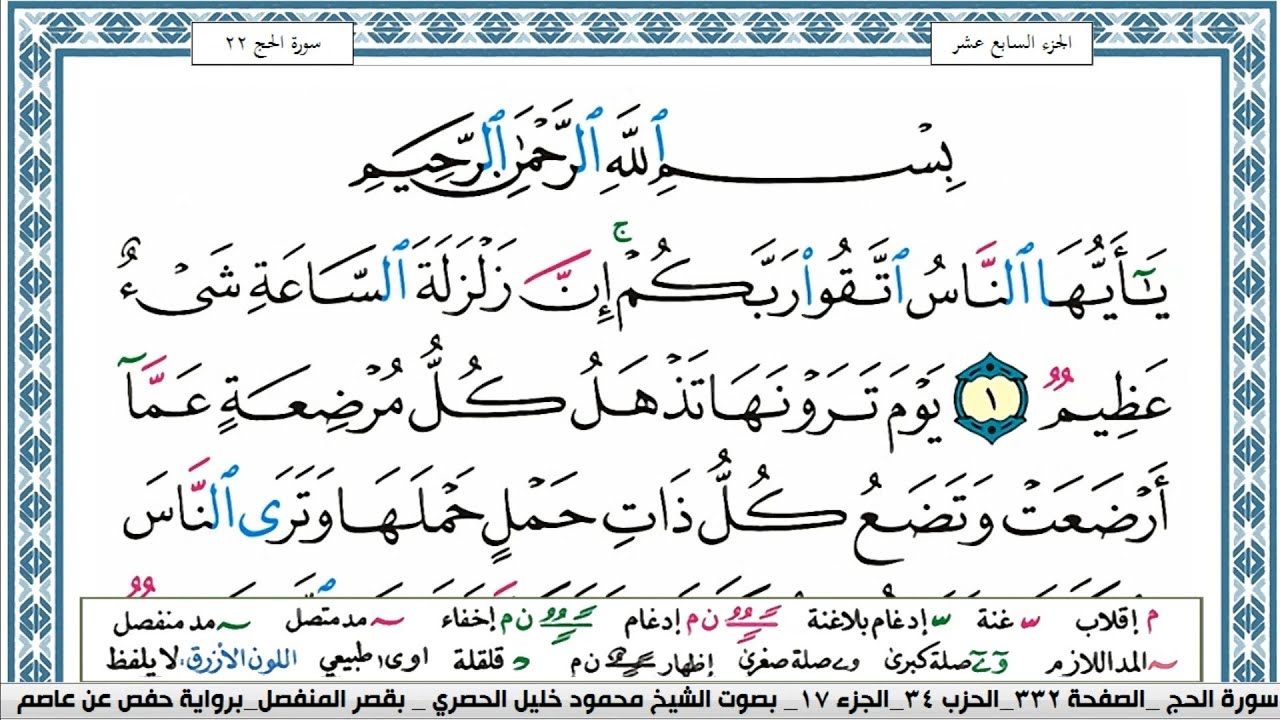 سورة الحج ٢٢
الجزء السابع عشر
بِسْمِ ٱللَّهِ ٱلرَّحْمَٰنِ ٱلرَّحِيمِ
يَٰٓأَيُّهَا ٱلنَّاسُ ٱتَّقُوا۟ رَبَّكُمْ ۚ إِنَّ زَلْزَلَةَ ٱلسَّاعَةِ شَىْءٌ
عَظِيمٌ ١ يَوْمَ تَرَوْنَهَا تَذْهَلُ كُلُّ مُرْضِعَةٍ عَمَّآ
أَرْضَعَتْ وَتَضَعُ كُلُّ ذَاتِ حَمْلٍ حَمْلَهَا وَتَرَى ٱلنَّاسَ
م إقلاب غنة إدغام بلاغنة ن م إدغام ن م إخفاء مد متصل مد منفصل
المد اللازم صلة كبرى صلة صغرى إظهار ن م قلقلة اوى طبيعي اللون الأزرق، لا يلفظ
سورة الحج _الصفحة ٣٣٢_الحزب ٣٤_الجزء ١٧_ بصوت الشيخ محمود خليل الحصري _ بقصر المنفصل_برواية حفص عن عاصم